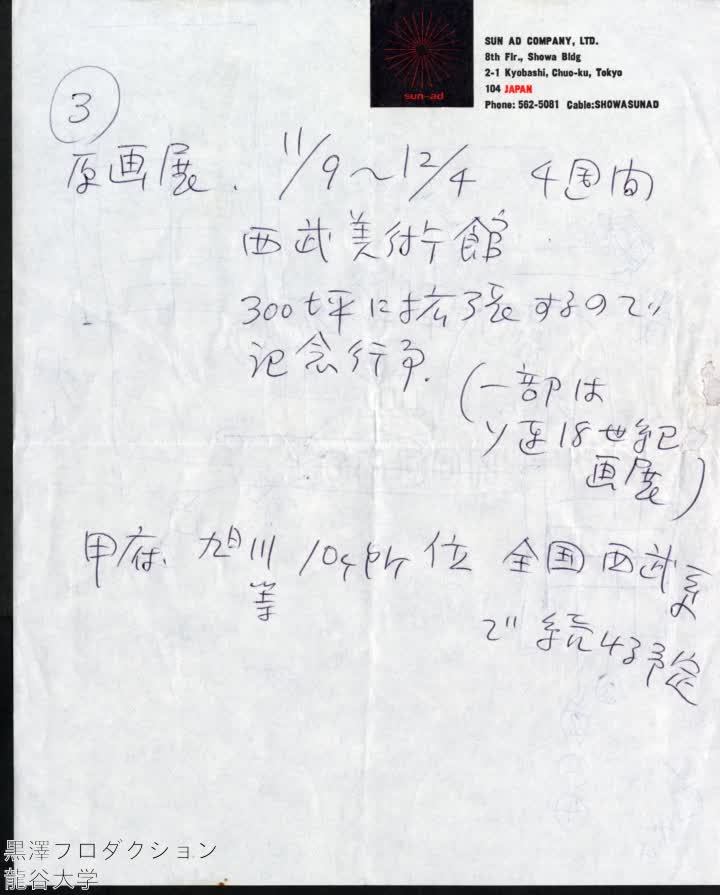 sun-ad
SUN AD COMPANY, LTD.
8th Flr., Showa Bldg
2-1 Kyobashi, Chuo-ku, Tokyo
104 JAPAN
Phone: 562-5081 Cable:SHOWASUNAD
3
原画展. 11/9〜12/4 4週間
西武美術館
300坪に拡張するので
記念行事.
(一部は
ソ連18世紀
画展)
甲府、旭川 10ヶ所位 全国西武系
等
で続ける予定
黒澤プロダクション
龍谷大学